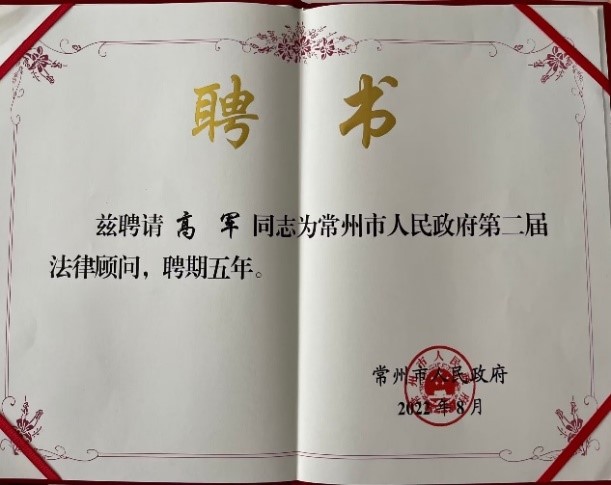 聘书
兹聘请 高 军 同志为常州市人民政府第二届
法律顾问，聘期五年。
常州市人民政府
2022年8月